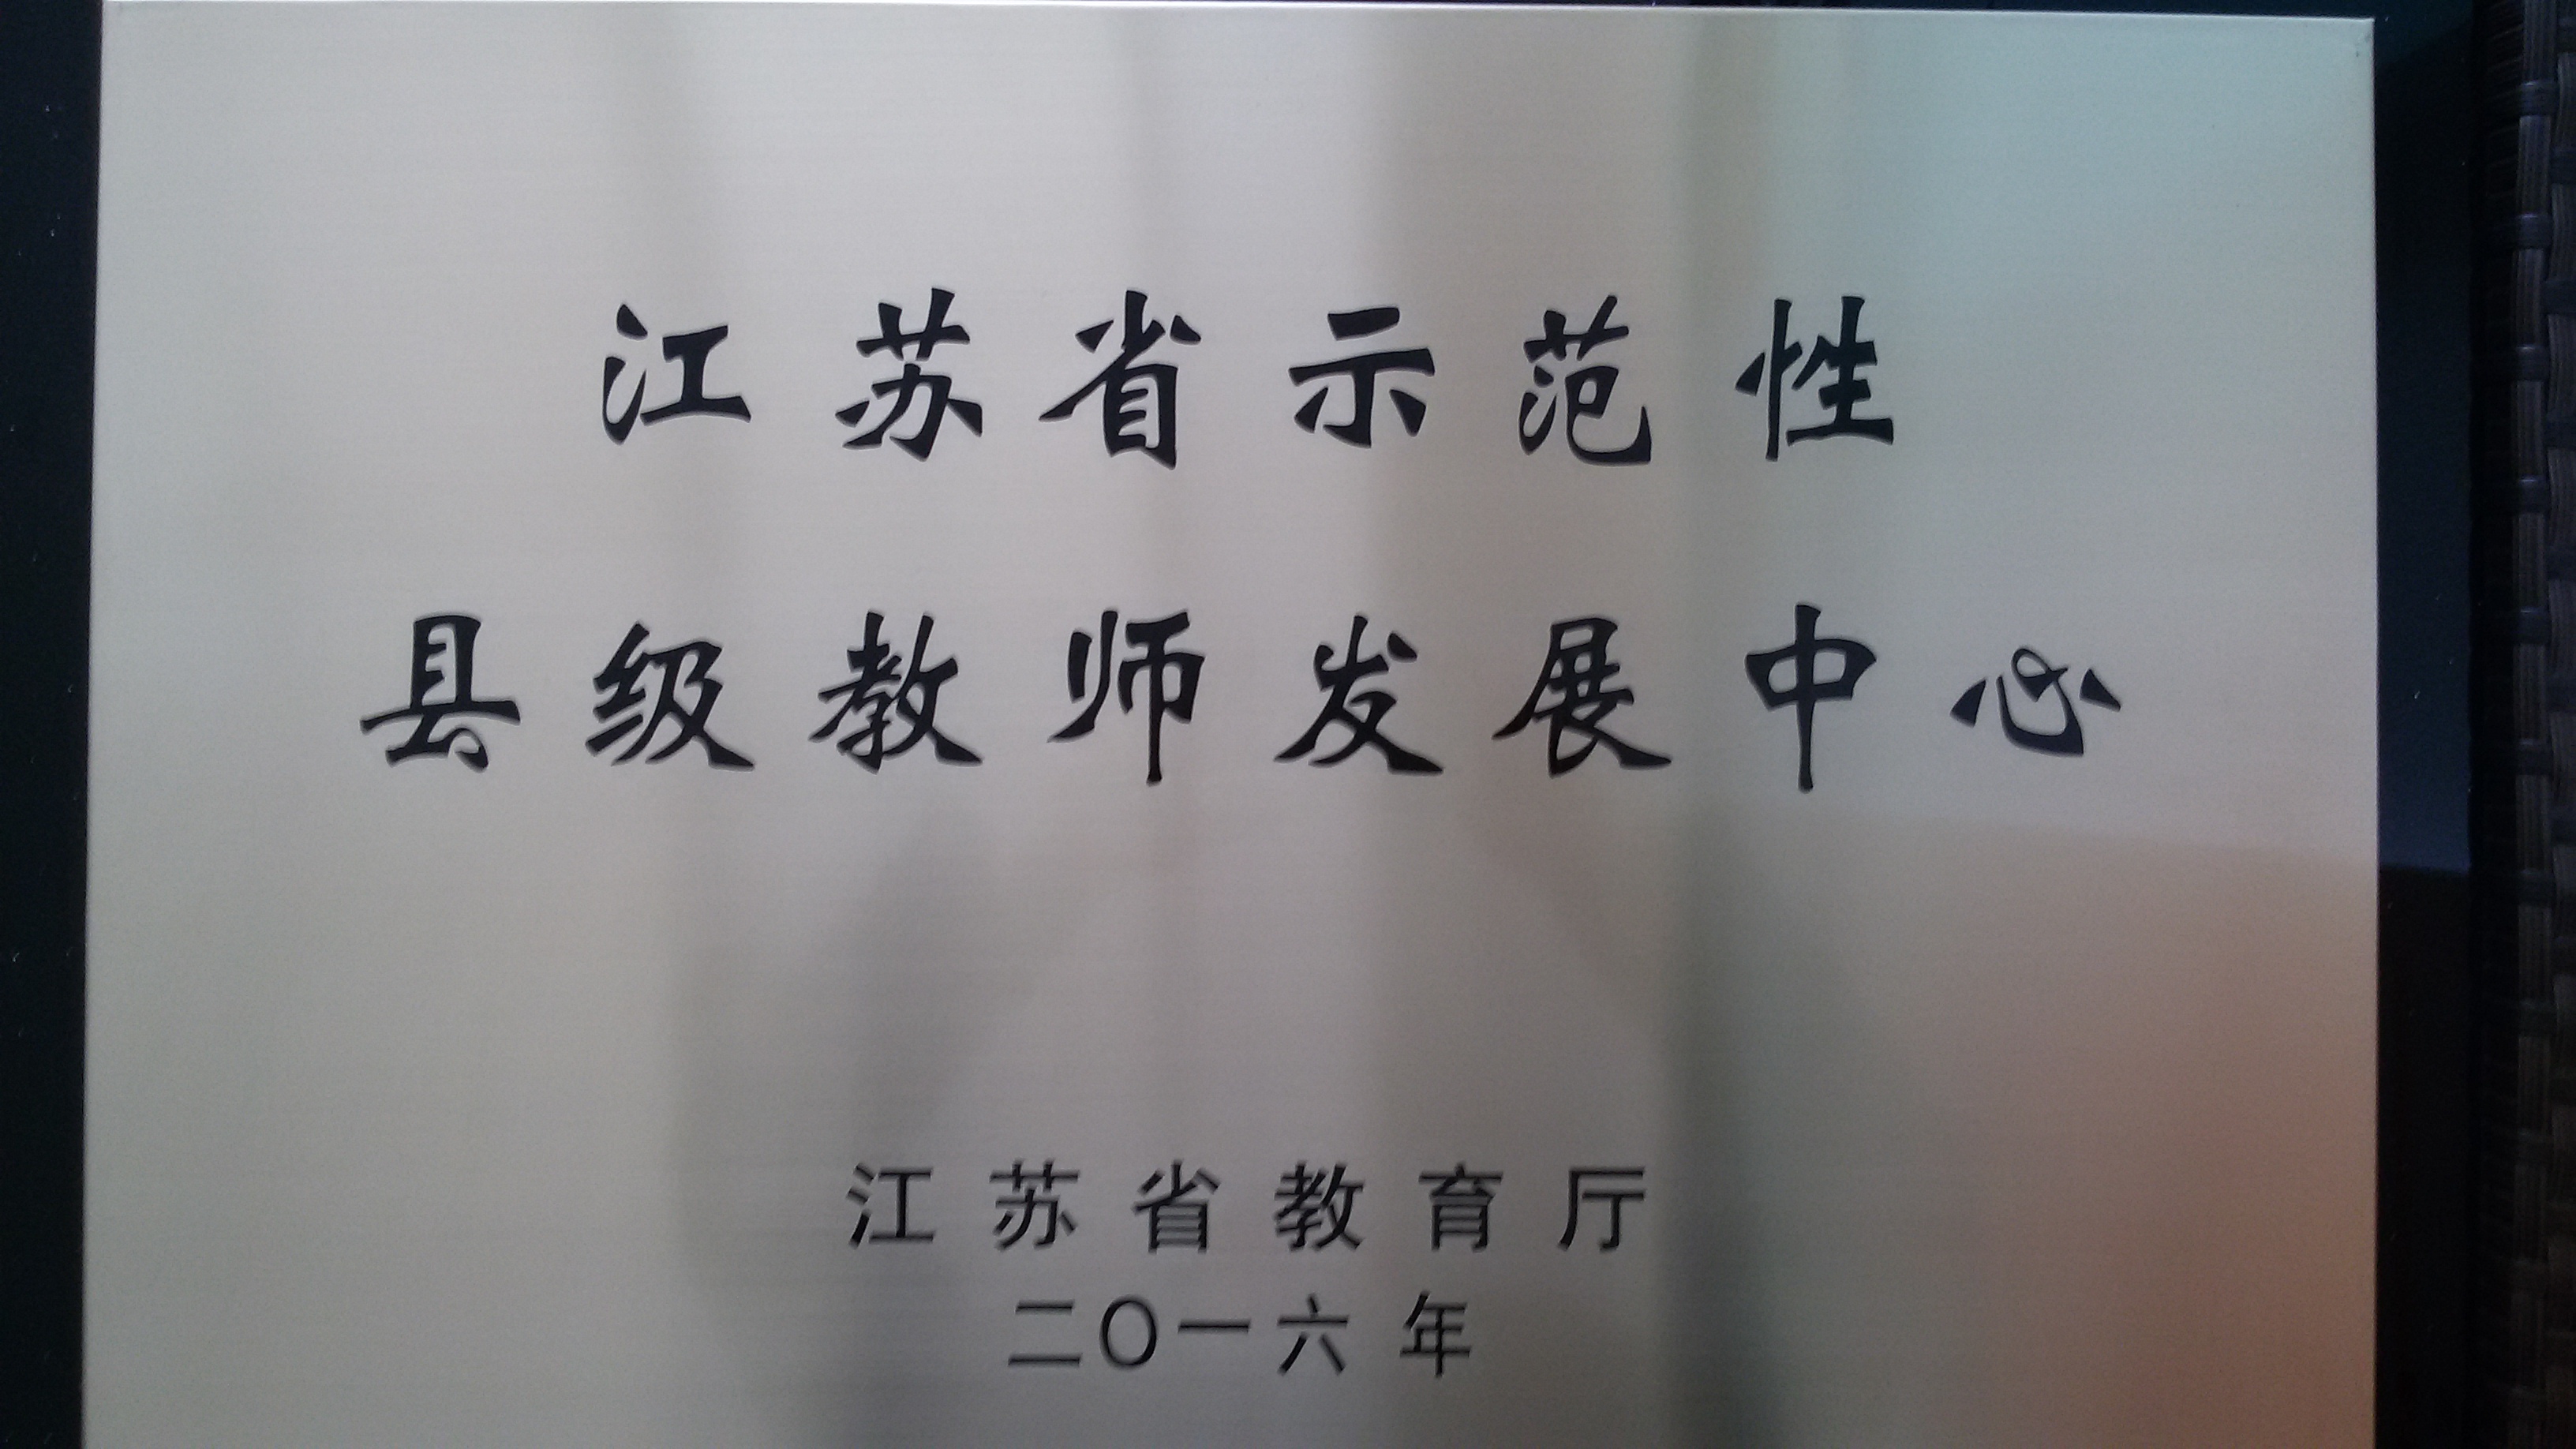 江苏省示范性
县级教师发展中心
江苏省教育厅
二〇一六年